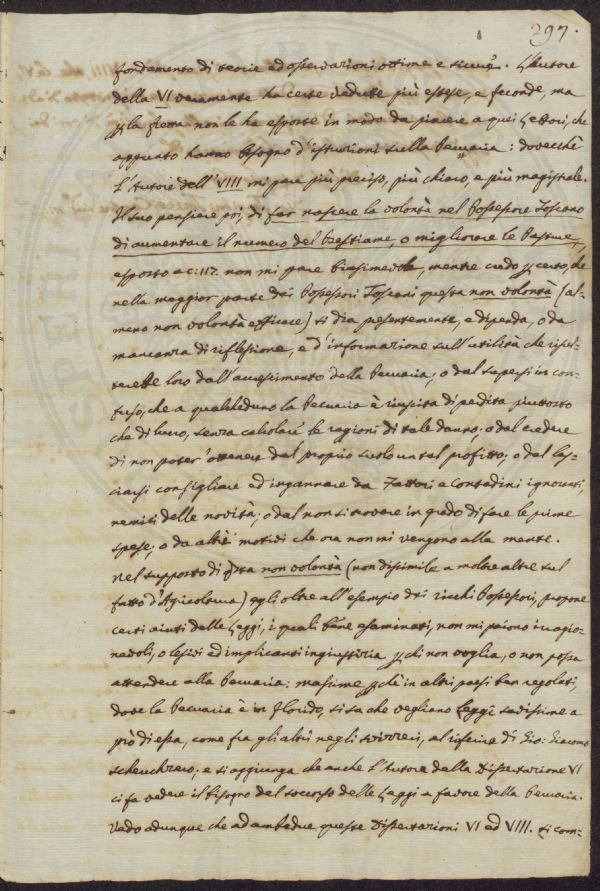 297.
fondamento di teorie ed osservazioni ottime e sicure. L'Autore
della VI veramente ha certe vedute più estese, e feconde, ma
p la fretta non le ha esposte in modo da piacere a quei Lettori, che
appunto hanno bisogno d'istruzioni sulla Pecuaria: dovecchè
l'Autore dell'VIII mi pare più preciso, più chiaro, e più magistrale.
Il suo pensiere poi, di far nascere la volontà nel Possessore Toscano
di aumentare il numero del bestiame, o migliorare le Pasture,
esposto a c: 117. non mi pare biasimevole, mentre credo p certo, che
nella maggior parte dei Possessori Toscani questa non volontà (al-
meno non volontà efficace) si dia presentemente, e dipenda, o da
mancanza di riflessione, e d'informazione sull'utilità che risul-
terebbe loro dall'accrescimento della Pecuaria; o dal sapersi in con-
fuso, che a qualcheduno la Pecuaria è riuscita di perdita piuttosto
che di lucro, senza calcolare le ragioni di tale danno; o dal credere
di non poter ottenere dal proprio suolo un tal profitto; o dal las-
ciarsi consigliare ed ingannare da Fattori e Contadini ignoranti,
nemici delle novità; o dal non si trovare in grado di fare le prime
spese; o da altri motivi che ora non mi vengono alla mente.
Nel supposto di qsta non volontà (non dissimile a molte altre sul
fatto d'Agricoltura) egli oltre all'esempio dei ricchi Possessori, propone
certi aiuti delle Leggi, i quali bene esaminati, non mi paiono irragio-
nevoli, o lesivi ed implicanti ingiustizia p chi non voglia, o non possa
attendere alla Pecuaria: massime p chè in altri paesi ben regolati,
dove la Pecuaria è in florido, si sa che vegliano Leggi savissime a
prò di essa, come fra gli altri negli Svizzeri, al riferire di Gio: Giacomo
Scheuchzero; e si aggiunga che anche l'Autore della Dissertazione VI
ci fa vedere il bisogno del soccorso delle Leggi a favore della Pecuaria.
Vedo adunque che ad ambedue queste Dissertazioni VI ed VIII. si com-